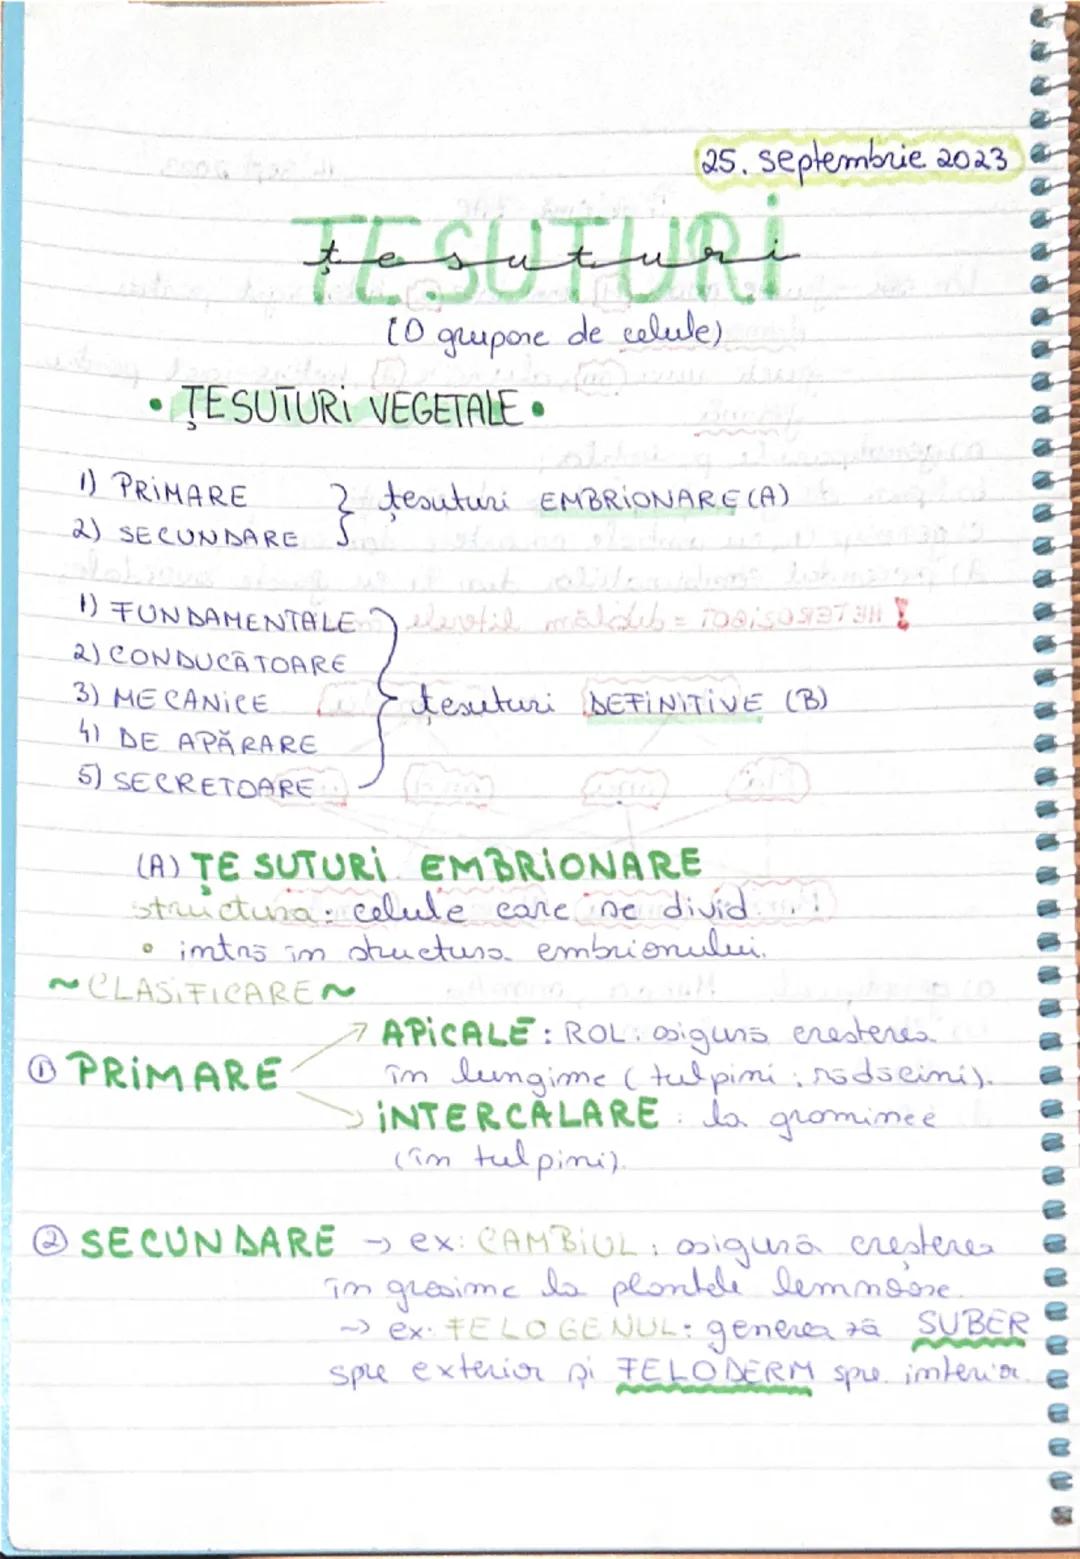 25. septembrie 2023
ȚESUTURI
țesuturi
(O grupare de celule)
• ȚESUTURI VEGETALE •
1) PRIMARE
2) SECUNDARE
} țesuturi EMBRIONARE (A)
1) FUNDAMENTALE
2) CONDUCĂTOARE
3) MECANICE
4) DE APĂRARE
5) SECRETOARE
} țesuturi DEFINITIVE (B)
(A) ȚESUTURI EMBRIONARE
structura: celule care se divid
• intră în structura embrionului.
~CLASIFICARE~
① PRIMARE
→ APICALE: ROL: asigură creșterea
în lungime (tulpini; rădăcini).
→ INTERCALARE: la graminee
(în tulpini).
② SECUNDARE → ex: CAMBIUL: asigură creșterea
în grosime la plantele lemnoase.
→ ex: FELOGENUL: generează SUBER
spre exterior și FELODERM spre interior.